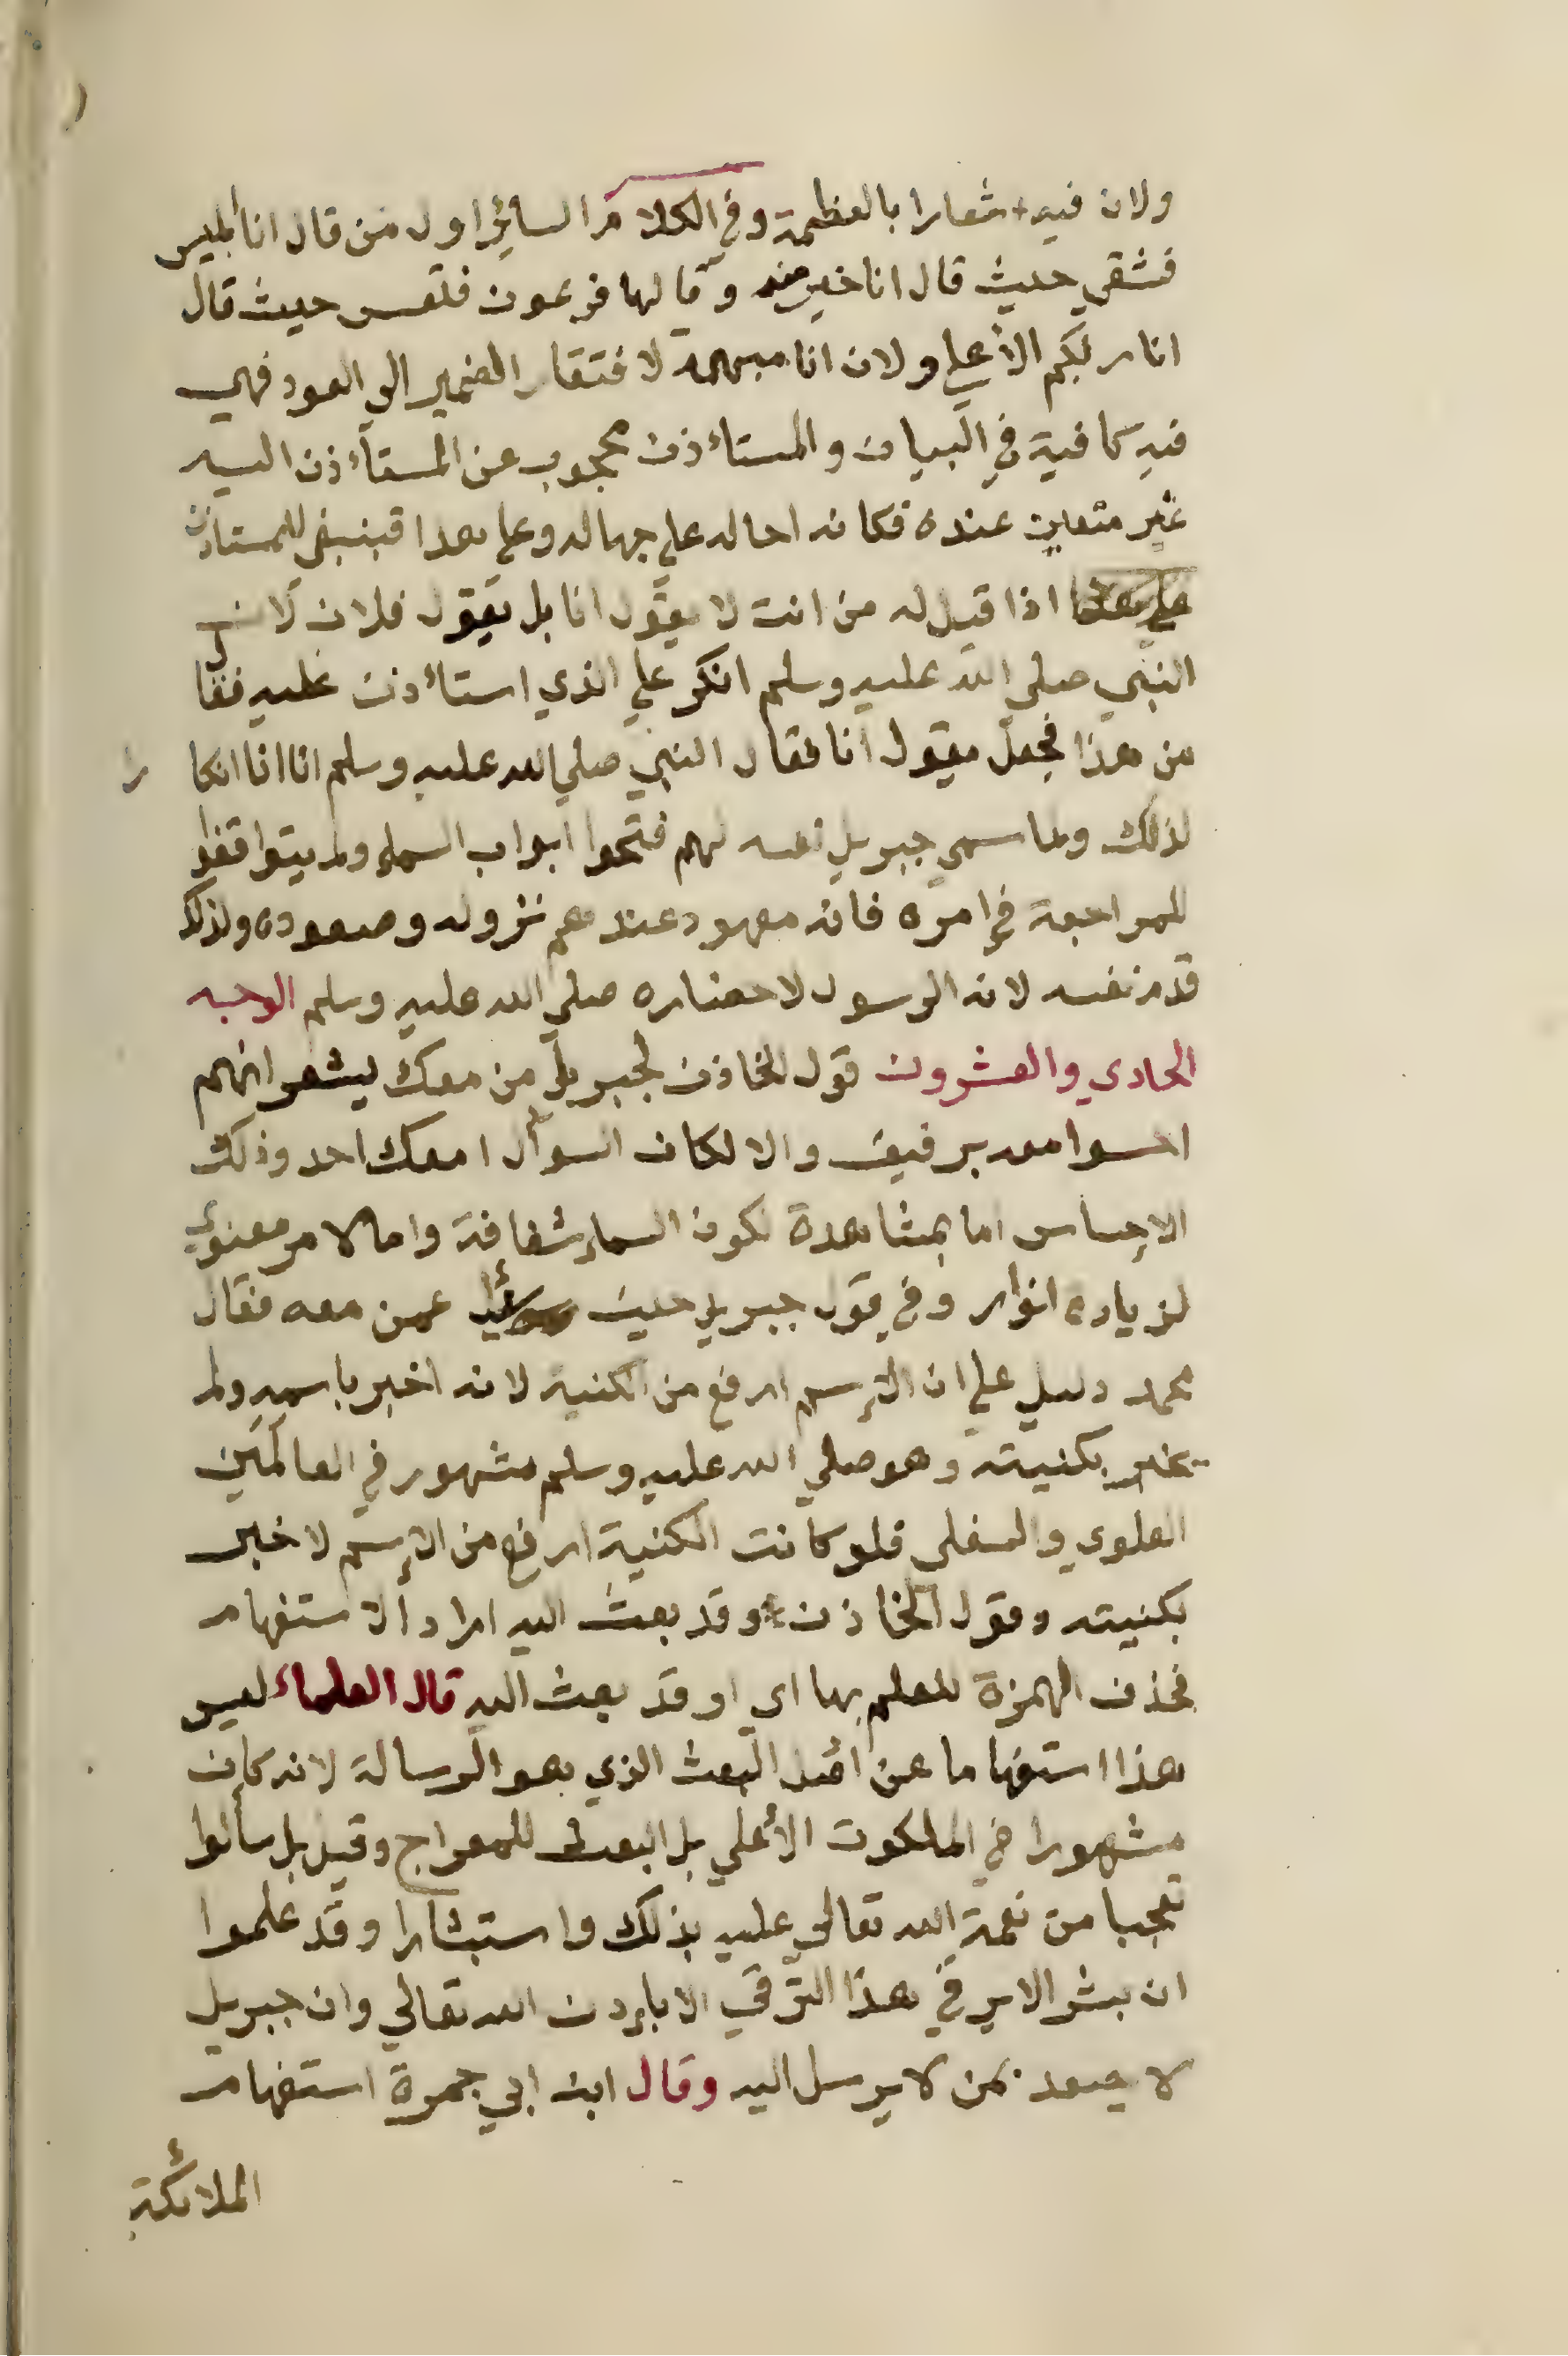 ولان فيه اشعارا بالعظمة وفي الكلام السائر اول من قال انا ابليس
فشقي حيث قال انا خير منه وقالها فرعون فتعس حيث قال
انا ربكم الأعلي ولان انا مبهمة لافتقار الضمير الي العود فهي
غير كافية في البيان والمستأذن محجوب عن المستأذن اليه
غير متعين عنده فكانه احاله علي جهاله وعلي هذا فينبغي للمستاذن
اذا قيل له من انت لا يقول انا بل يقول فلان لان
النبي صلي الله عليه وسلم انكر علي الذي استأذن عليه فقال
من هذا فجعل يقول انا فقال النبي صلي الله عليه وسلم انا انا انكارا
لذلك ولما سمي جبريل نفسه لهم فتحوا ابواب السماء ولم يتواقفوا
للمراجعة في امره فانه معهود عندهم نزوله وصعوده ولذلك
قدم نفسه لانه الرسول لاحضاره صلي الله عليه وسلم الوجه
الحادي والعشرون قول الخازن لجبريل من معك يشعر انهم
احسوا معه برفيق والا لكان السوال امعك احد وذلك
الاحساس اما بمشاهدة لكون السماء شفافة واما لامر معنوي
لزياده انوار وفي قول جبريل حين سئل عمن معه فقال
محمد دليل علي ان الإسم ارفع من الكنية لانه اخبر باسمه ولم
يخبر بكنيته وهو صلي الله عليه وسلم مشهور في العالمَين
العلوي والسفلي فلو كانت الكنية ارفع من الإسم لاخبر
بكنيته وقول الخازن وقد بعث اليه اراد الاستفهام
فحذف الهمزة للعلم بها اي او قد بعث اليه قال العلماء ليس
هذا استفهاما عن اصل البعث الذي هو الرسالة لانه كان
مشهورا في الملكوت الأعلي بل البعث للمعراج وقيل بل سألوا
تعجبا من نعمة الله تعالي عليه بذلك واستبشارا وقد علموا
ان بشرا لا يرقي هذا الترقي الا باذن الله تعالي وان جبريل
لا يصعد بمن لا يرسل اليه وقال ابن ابي جمرة استفهام
الملائكة